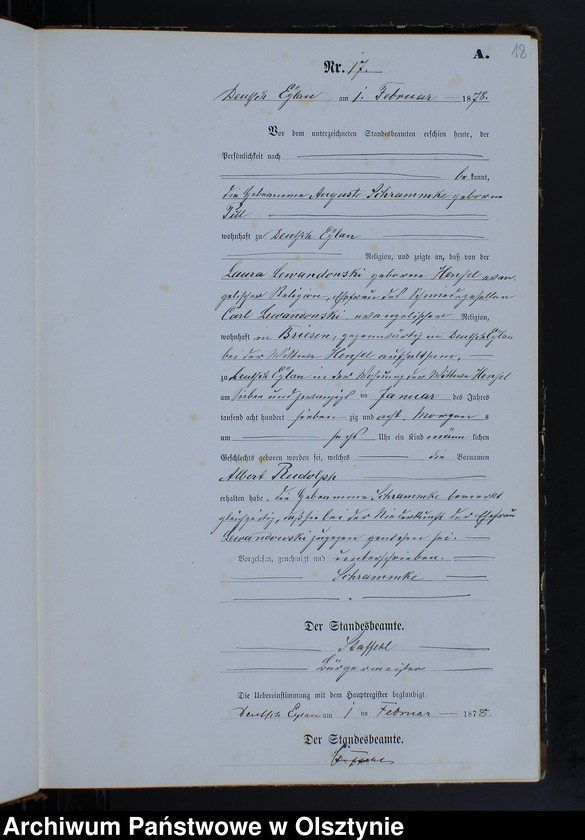 A.
18
Nr. 17.
Deutsch Eylau am 1. Februar 1878.
Vor dem unterzeichneten Standesbeamten erschien heute, der
Persönlichkeit nach
bekannt,
die Hebeamme Auguste Schrammke geborne
Till
wohnhaft zu Deutsch Eylau
Religion, und zeigte an, daß von der
Laura Lewandowski geborne Hensel evan-
gelischer Religion, Ehefrau des Schmiedegesellen
Carl Lewandowski evangelischer Religion,
wohnhaft in Briesen, gegenwärtig in Deutsch Eylau
bei der Wittwe Hensel aufhaltsam,
zu Deutsch Eylau in der Wohnung der Wittwe Hensel
am sieben und zwanzigsten Januar des Jahres
tausend acht hundert siebenzig und acht, Morgens
um sechs Uhr ein Kind männlichen
Geschlechts geboren worden sei, welches die Vornamen
Albert Rudolph
erhalten habe. Die Hebeamme Schrammke bemerkt
gleichzeitig, daß sie bei der Niederkunft der Ehefrau
Lewandowski zugegen gewesen sei.
Vorgelesen, genehmigt und unterschrieben.
Schrammke
Der Standesbeamte.
Staffehl
Bürgermeister
Die Uebereinstimmung mit dem Hauptregister beglaubigt.
Deutsch Eylau am 1 ten Februar 1878
Der Standesbeamte.
Archiwum Państwowe w Olsztynie